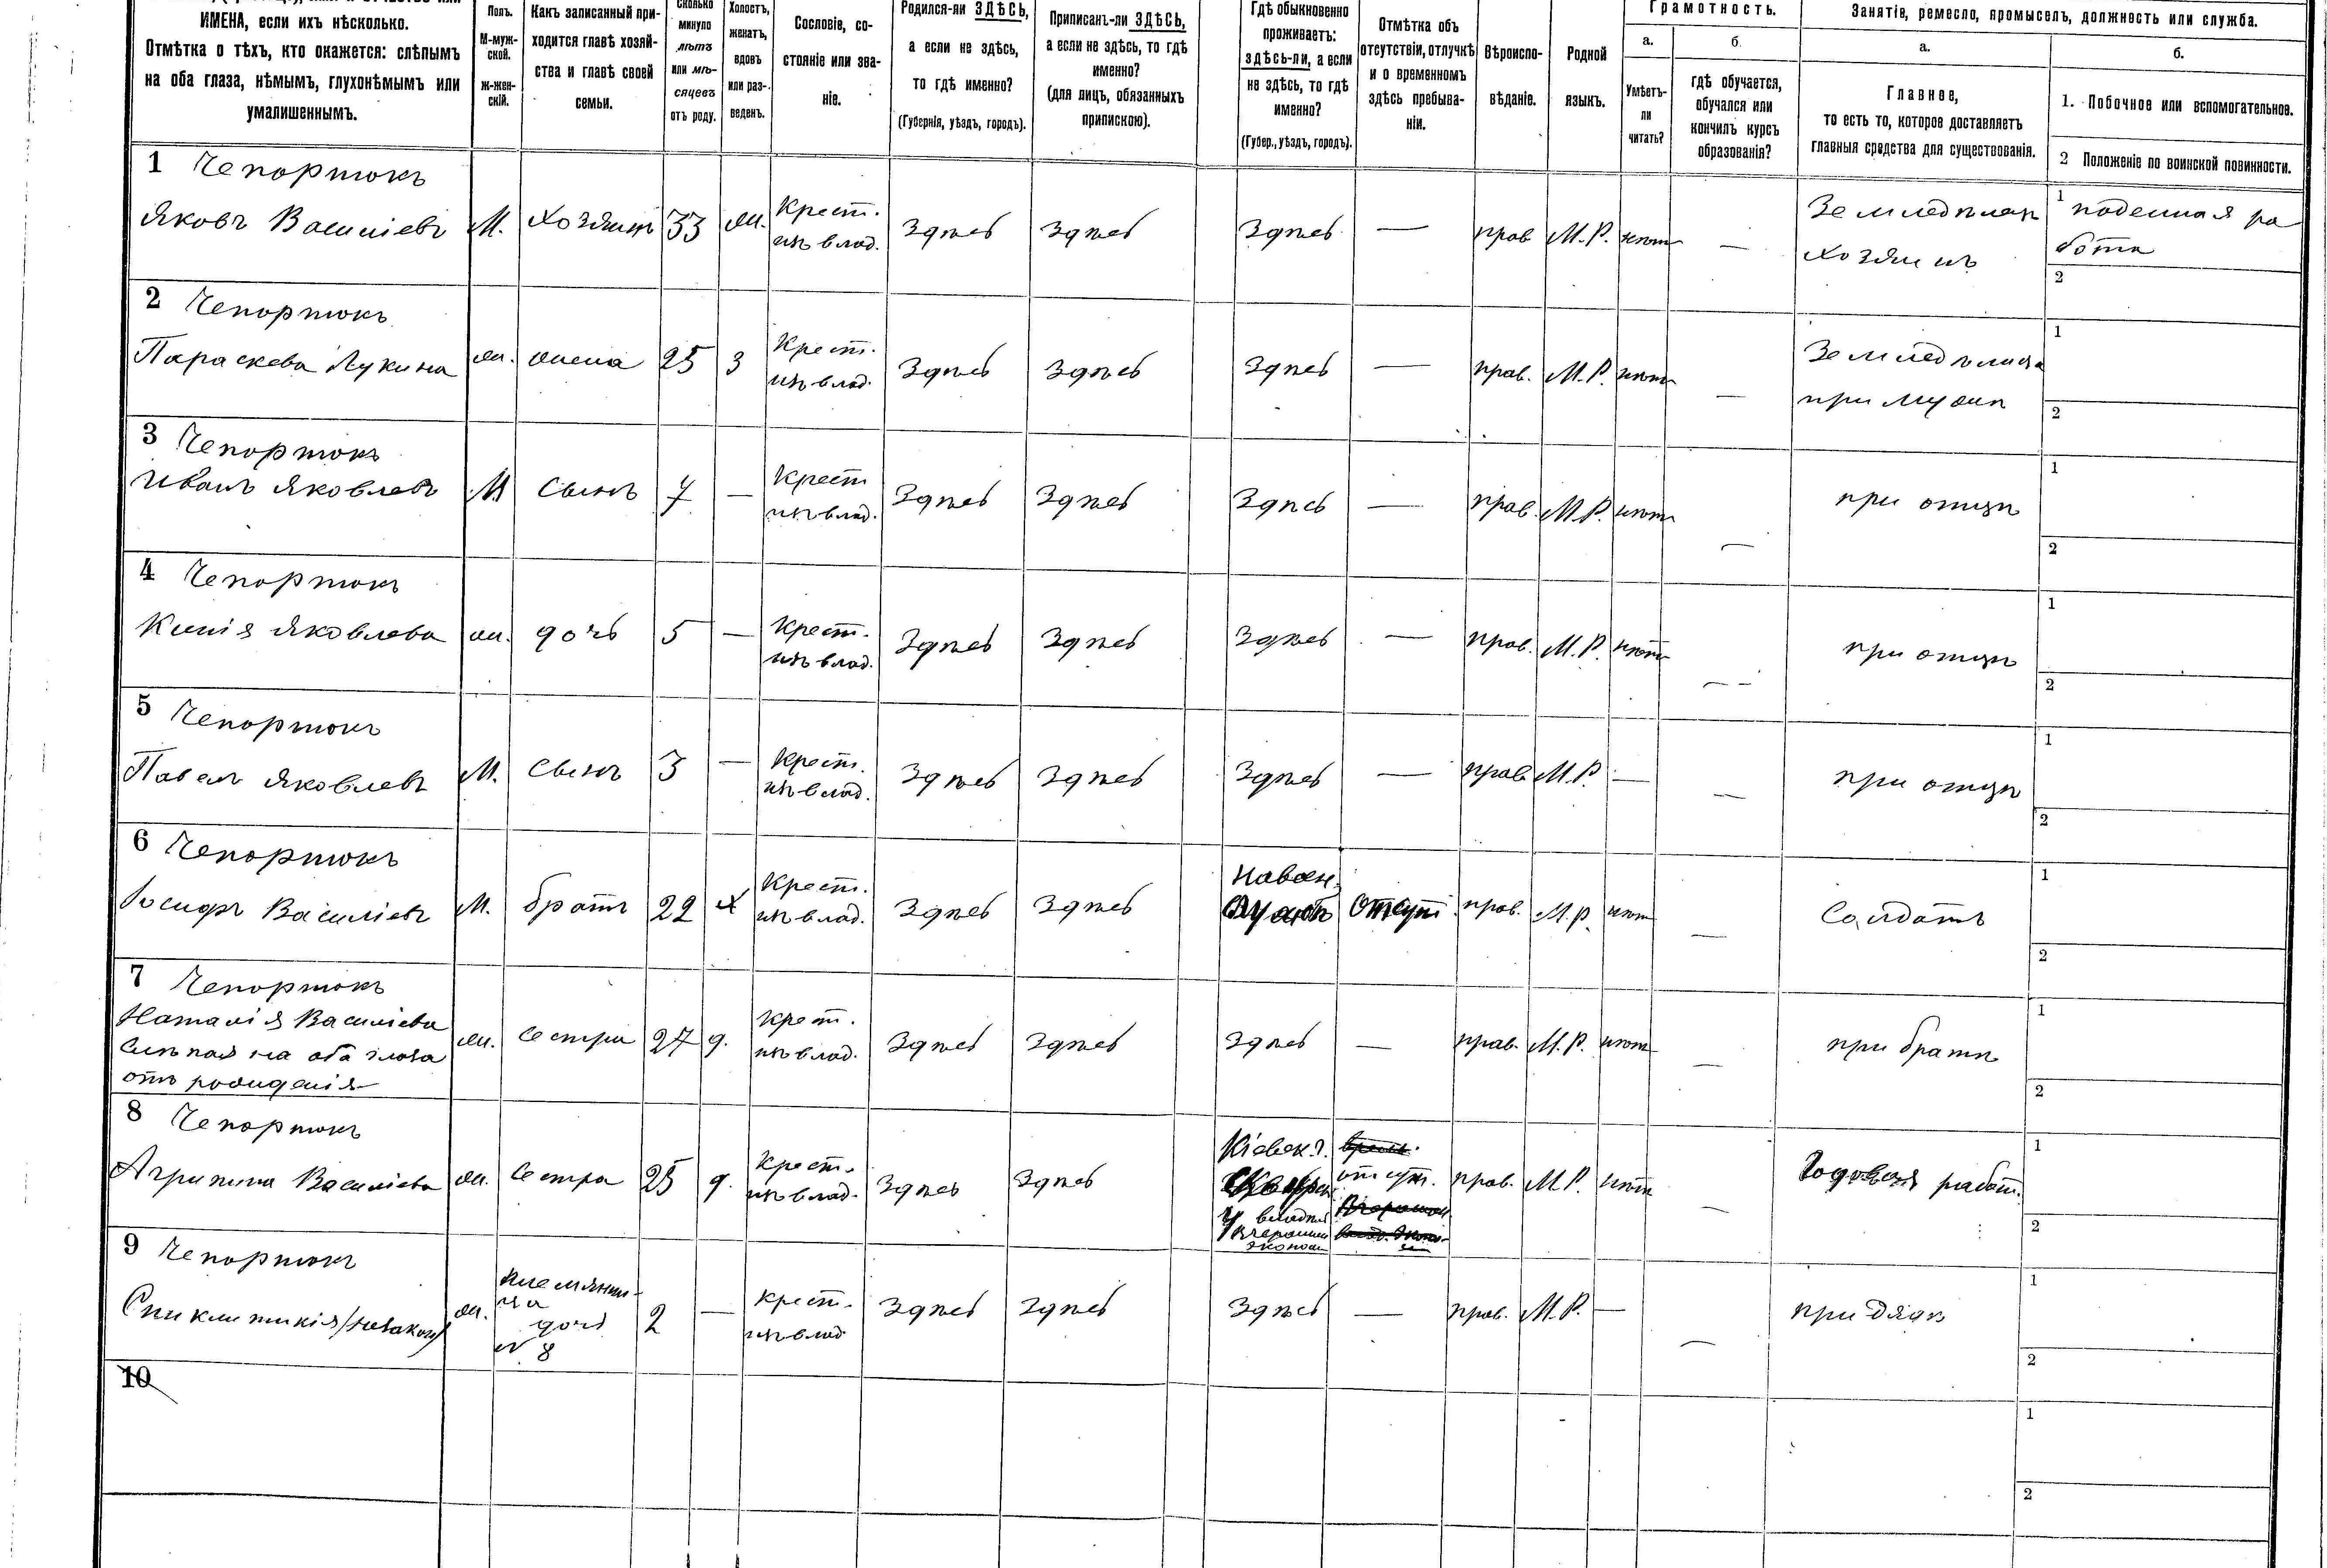 ИМЕНА, если ихъ нѣсколько.
Отмѣтка о тѣхъ, кто окажется: слѣпымъ
на оба глаза, нѣмымъ, глухонѣмымъ или
умалишеннымъ.
Полъ.
М-муж-
ской.
ж-жен-
скій.
Какъ записанный при-
ходится главѣ хозяй-
ства и главѣ своей
семьи.
сколько
минуло
лѣтъ
или мѣ-
сяцевъ
отъ роду.
Холостъ,
женатъ,
вдовъ
или раз-
веденъ.
Сословіе, со-
стояніе или зва-
ніе.
Родился-ли ЗДѢСЬ,
а если не здѣсь,
то гдѣ именно?
(Губернія, уѣздъ, городъ).
Приписанъ-ли ЗДѢСЬ,
а если не здѣсь, то гдѣ
именно?
(для лицъ, обязанныхъ
припискою).
Гдѣ обыкновенно
проживаетъ:
здѣсь-ли, а если
не здѣсь, то гдѣ
именно?
(Губер., уѣздъ, городъ).
Отмѣтка объ
отсутствіи, отлучкѣ
и о временномъ
здѣсь пребыва-
ніи.
Вѣроиспо-
вѣданіе.
Родной
языкъ.
Грамотность.
а.
Умѣетъ-
ли
читать?
б.
гдѣ обучается,
обучался или
кончилъ курсъ
образованія?
Занятіе, ремесло, промыселъ, должность или служба.
а.
Главное,
то есть то, которое доставляетъ
главныя средства для существованія.
б.
1. Побочное или вспомогательное.
2 Положеніе по воинской повинности.
1 Чепортюкъ
Яковъ Василіевъ М. хозяинъ 33 ж. Крест. из влад. Здѣсь Здѣсь Здѣсь — прав М.Р. нѣт —
Земледѣлец
хозяинъ
1 поденная ра
бота
2
2 Чепортюкъ
Параскева Лукина ж. жена 25 З Крест. из влад. Здѣсь Здѣсь Здѣсь — прав. М.Р. нѣт —
Земледѣлица
при мужѣ
1
2
3 Чепортюкъ
Иванъ Яковлевъ М сынъ 7 — Крест из влад. Здѣсь Здѣсь Здѣсь — прав. М.Р. нѣт —
при отцѣ
1
2
4 Чепортюкъ
Яковлева ж. дочь 5 — Крест. из влад. Здѣсь Здѣсь Здѣсь — прав. М.Р. нѣт —
при отцѣ
1
2
5 Чепортюкъ
Павелъ Яковлевъ М. сынъ 3 — Крест. из влад. Здѣсь Здѣсь Здѣсь — прав М.Р. — —
при отцѣ
1
2
6 Чепортюкъ
Іосифъ Василіевъ М. братъ 22 х Крест. из влад. Здѣсь Здѣсь
На воен.
службѣ
Отсут. прав. М.Р. нѣт —
Солдатъ
1
2
7 Чепортюкъ
Наталія Василіева
слѣпая на оба глаза
отъ рожденія
ж. сестра 27 д. Крест. из влад. Здѣсь Здѣсь Здѣсь — прав. М.Р. нѣт —
при братѣ
1
2
8 Чепортюкъ
Агрипина Василіева ж. Сестра 25 д. Крест. из влад. Здѣсь Здѣсь
Кіевск. г.
отсут. прав. М.Р. нѣт —
Годовая работ.
1
2
9 Чепортюкъ
ж.
племянни-
ца
дочь
№ 8
2 — Крест. из влад. Здѣсь Здѣсь Здѣсь — прав. М.Р. — —
при дядѣ
1
2
10
1
2